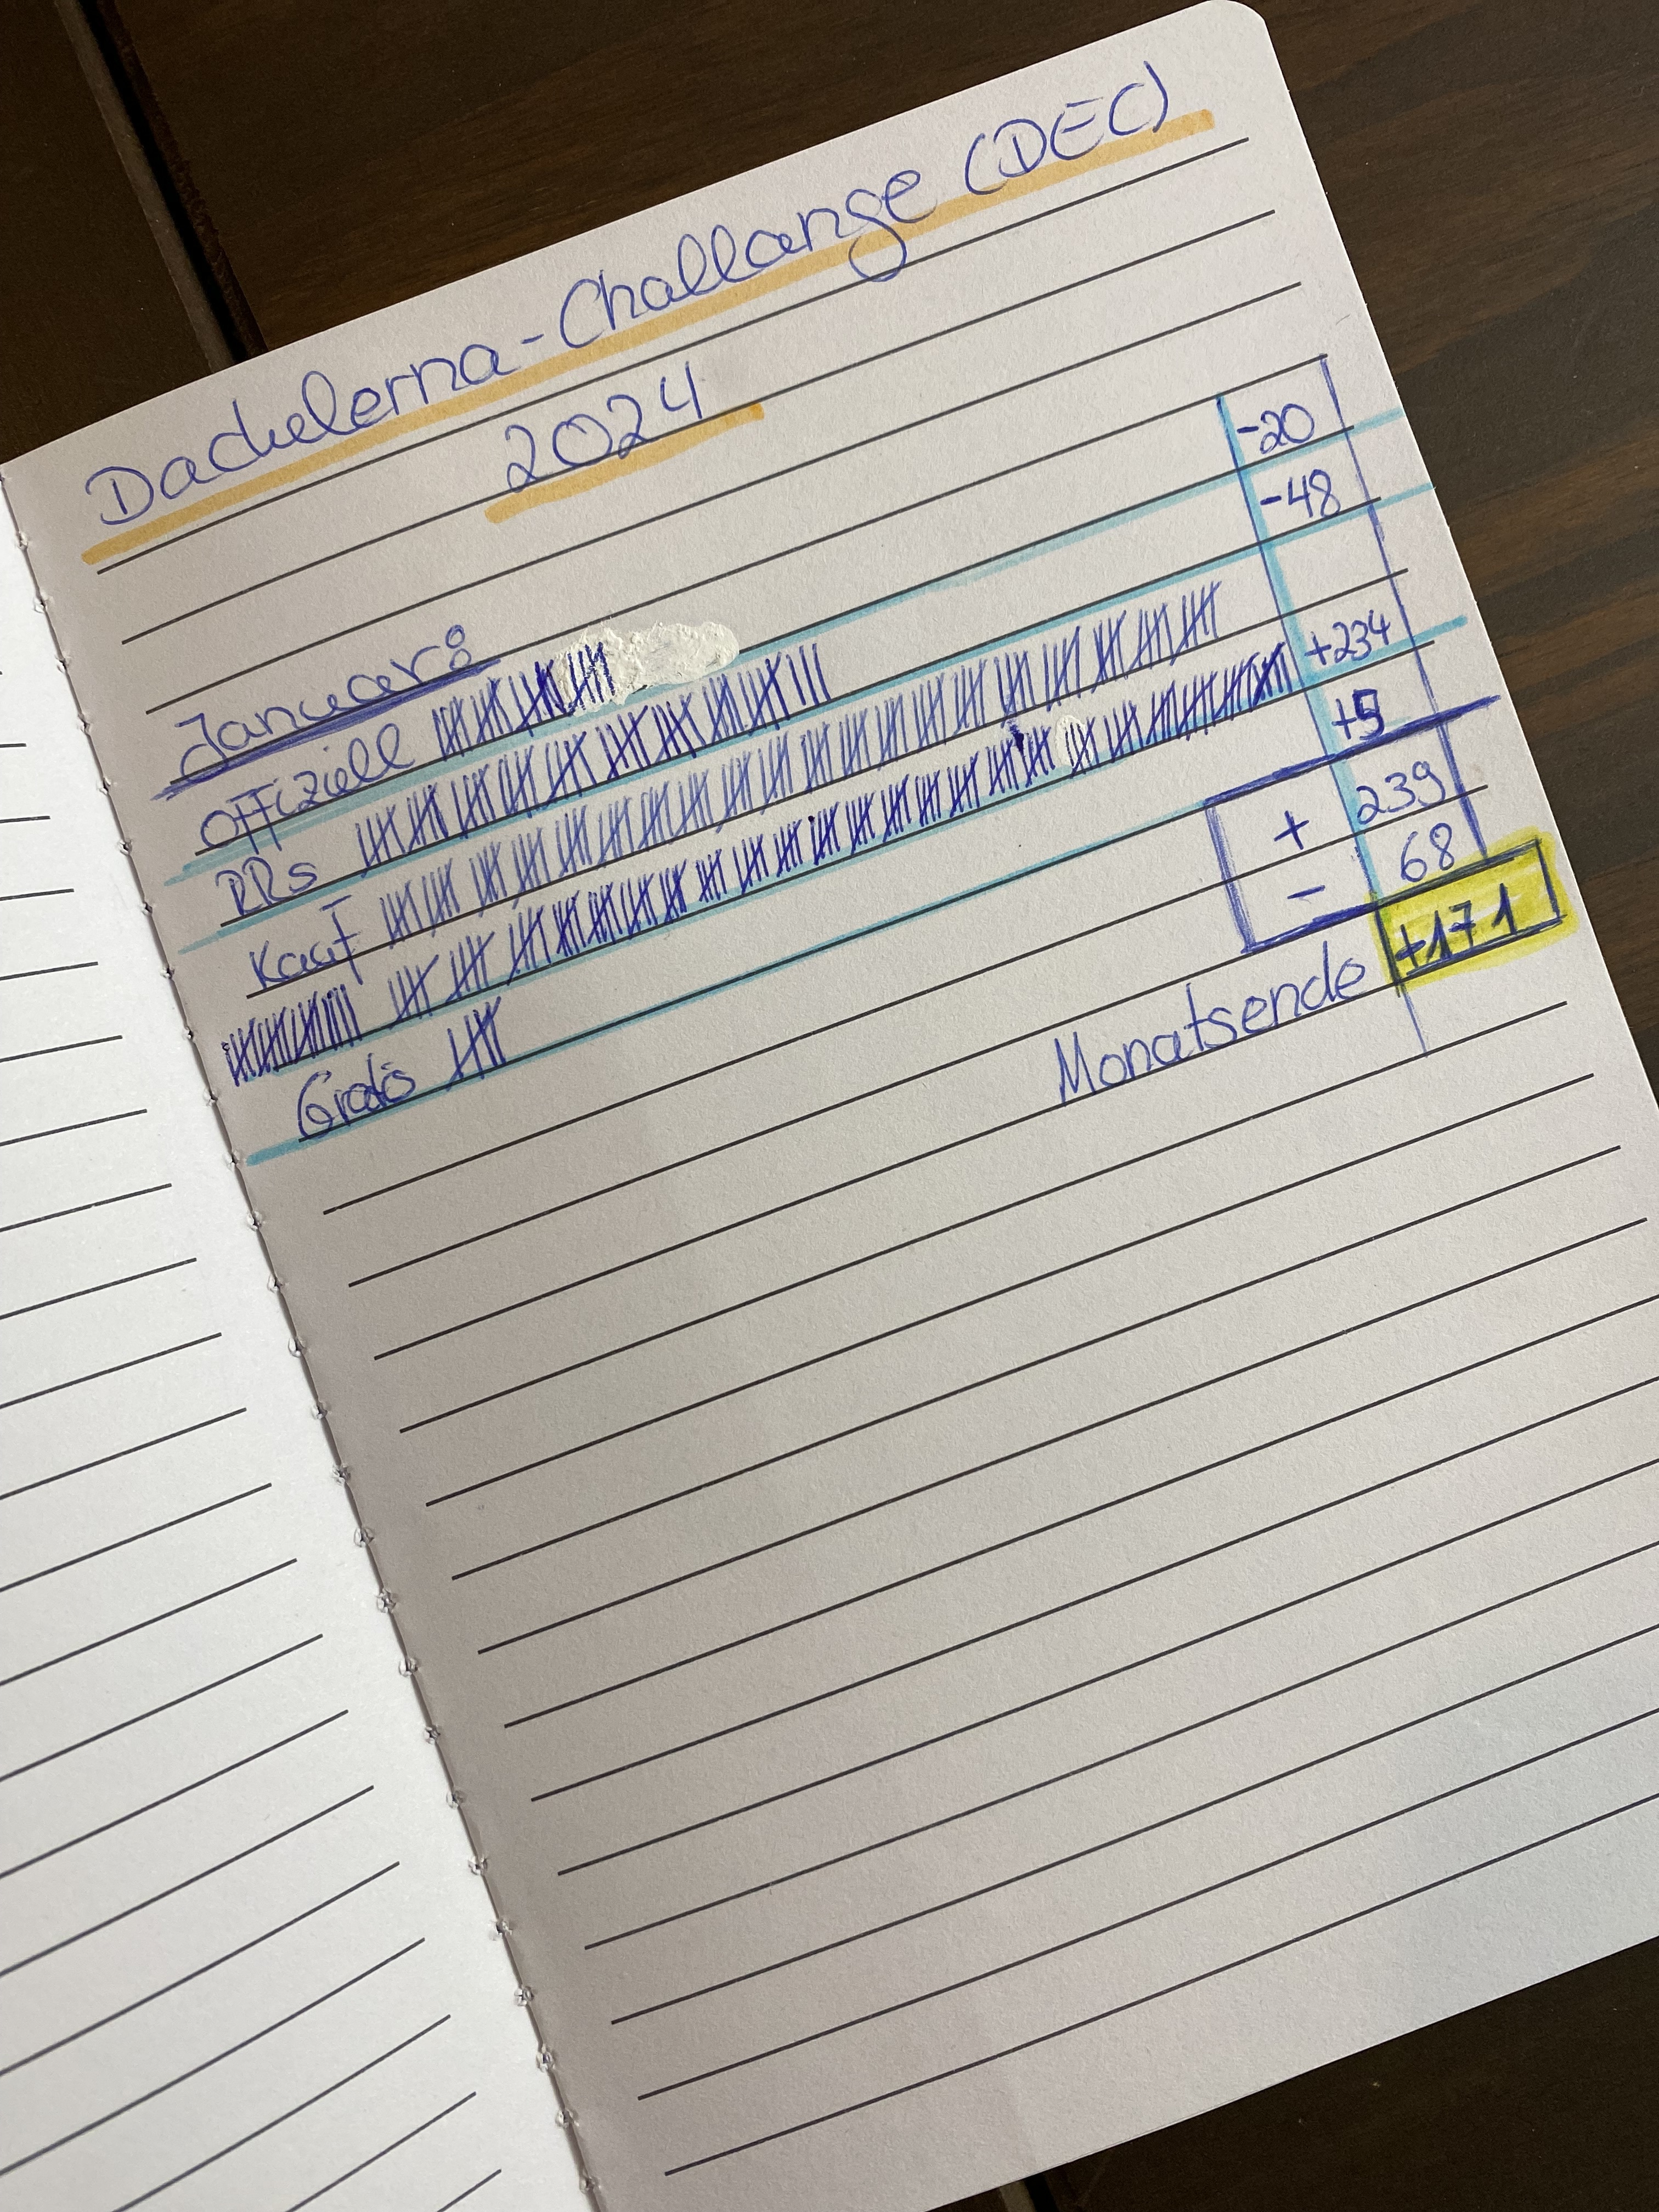 Dachlerna-Challange (DEC)
2024
Januar:
Offiziell -20
RRs -48
Kauf
+234
Gratis +5
+ 239
- 68
Monatsende +171